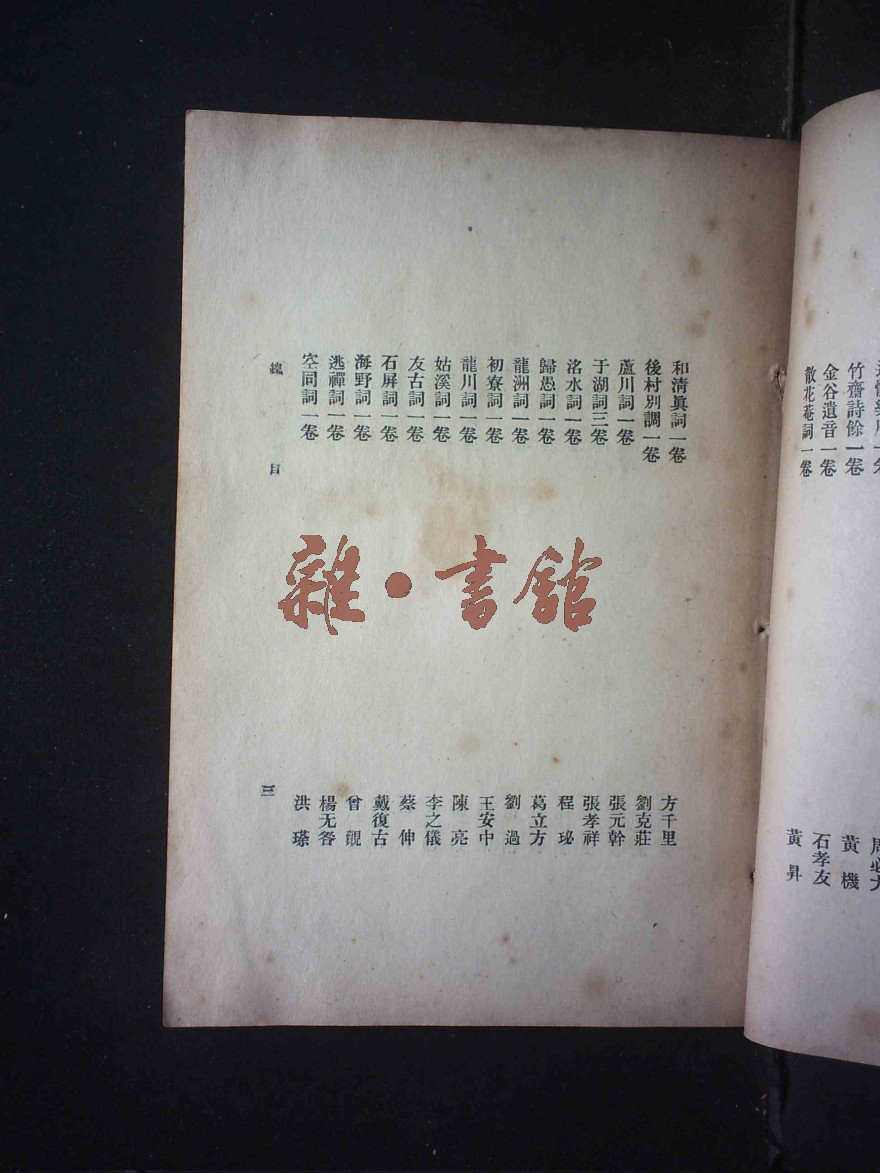 竹齋詩餘一卷 黃機
金谷遺音一卷 石孝友
散花菴詞一卷 黃昇
和清眞詞一卷 方千里
後村別調一卷 劉克莊
蘆川詞一卷 張元幹
于湖詞三卷 張孝祥
洺水詞一卷 程珌
歸愚詞一卷 葛立方
龍洲詞一卷 劉過
初寮詞一卷 王安中
龍川詞一卷 陳亮
姑溪詞一卷 李之儀
友古詞一卷 蔡伸
石屏詞一卷 戴復古
海野詞一卷 曾覿
逃禪詞一卷 楊无咎
空同詞一卷 洪瑹
總目 三
雜·書館